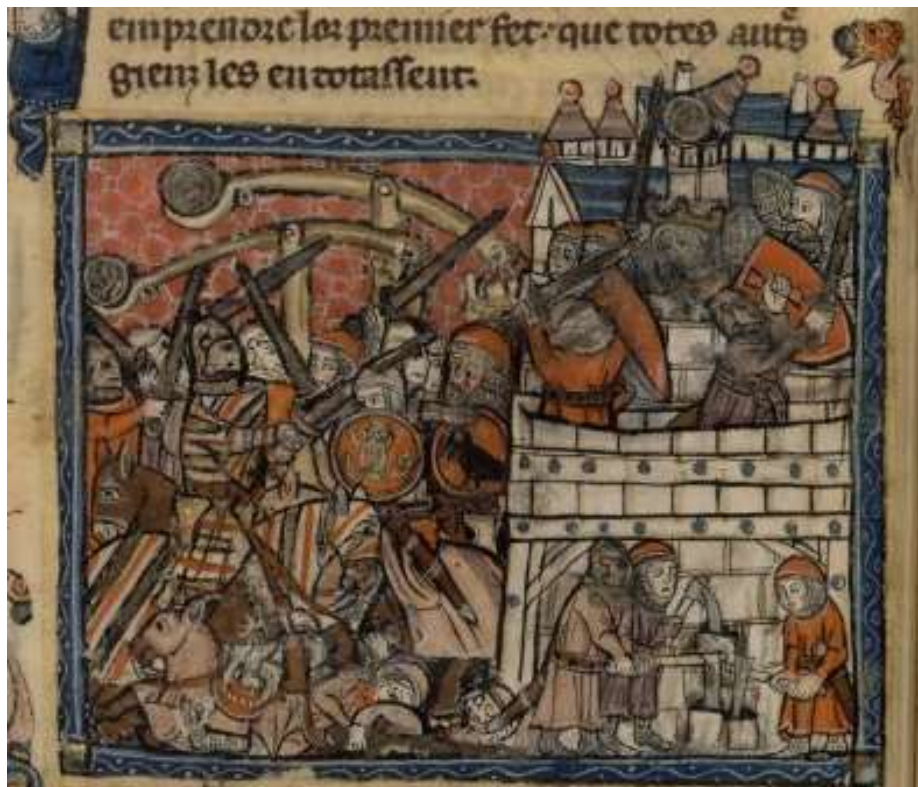 emprendre lor premier fet. que totes autͤs
gienz les en totassent.